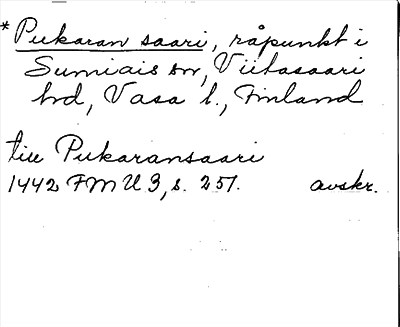 *Pukaran saari, råpunkt i
Sumiais sn, Viitasaari
hd, Vasa l., Finland
till Pukaransaari
1442 FMU 3, s. 251. avskr.